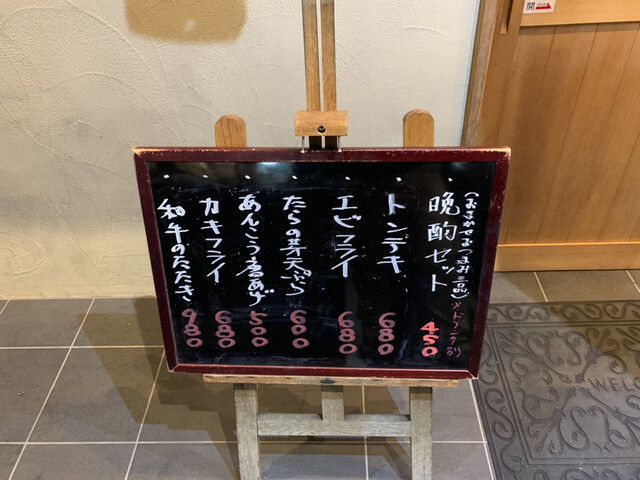 開
・晩酌セット 450
(おまかせおつまみ三品)
・トンテキ 680
・エビフライ 680
・たらの芽天ぷら 600
・あんこう唐あげ 500
・カキフライ 680
・和牛のたたき 980
WEL